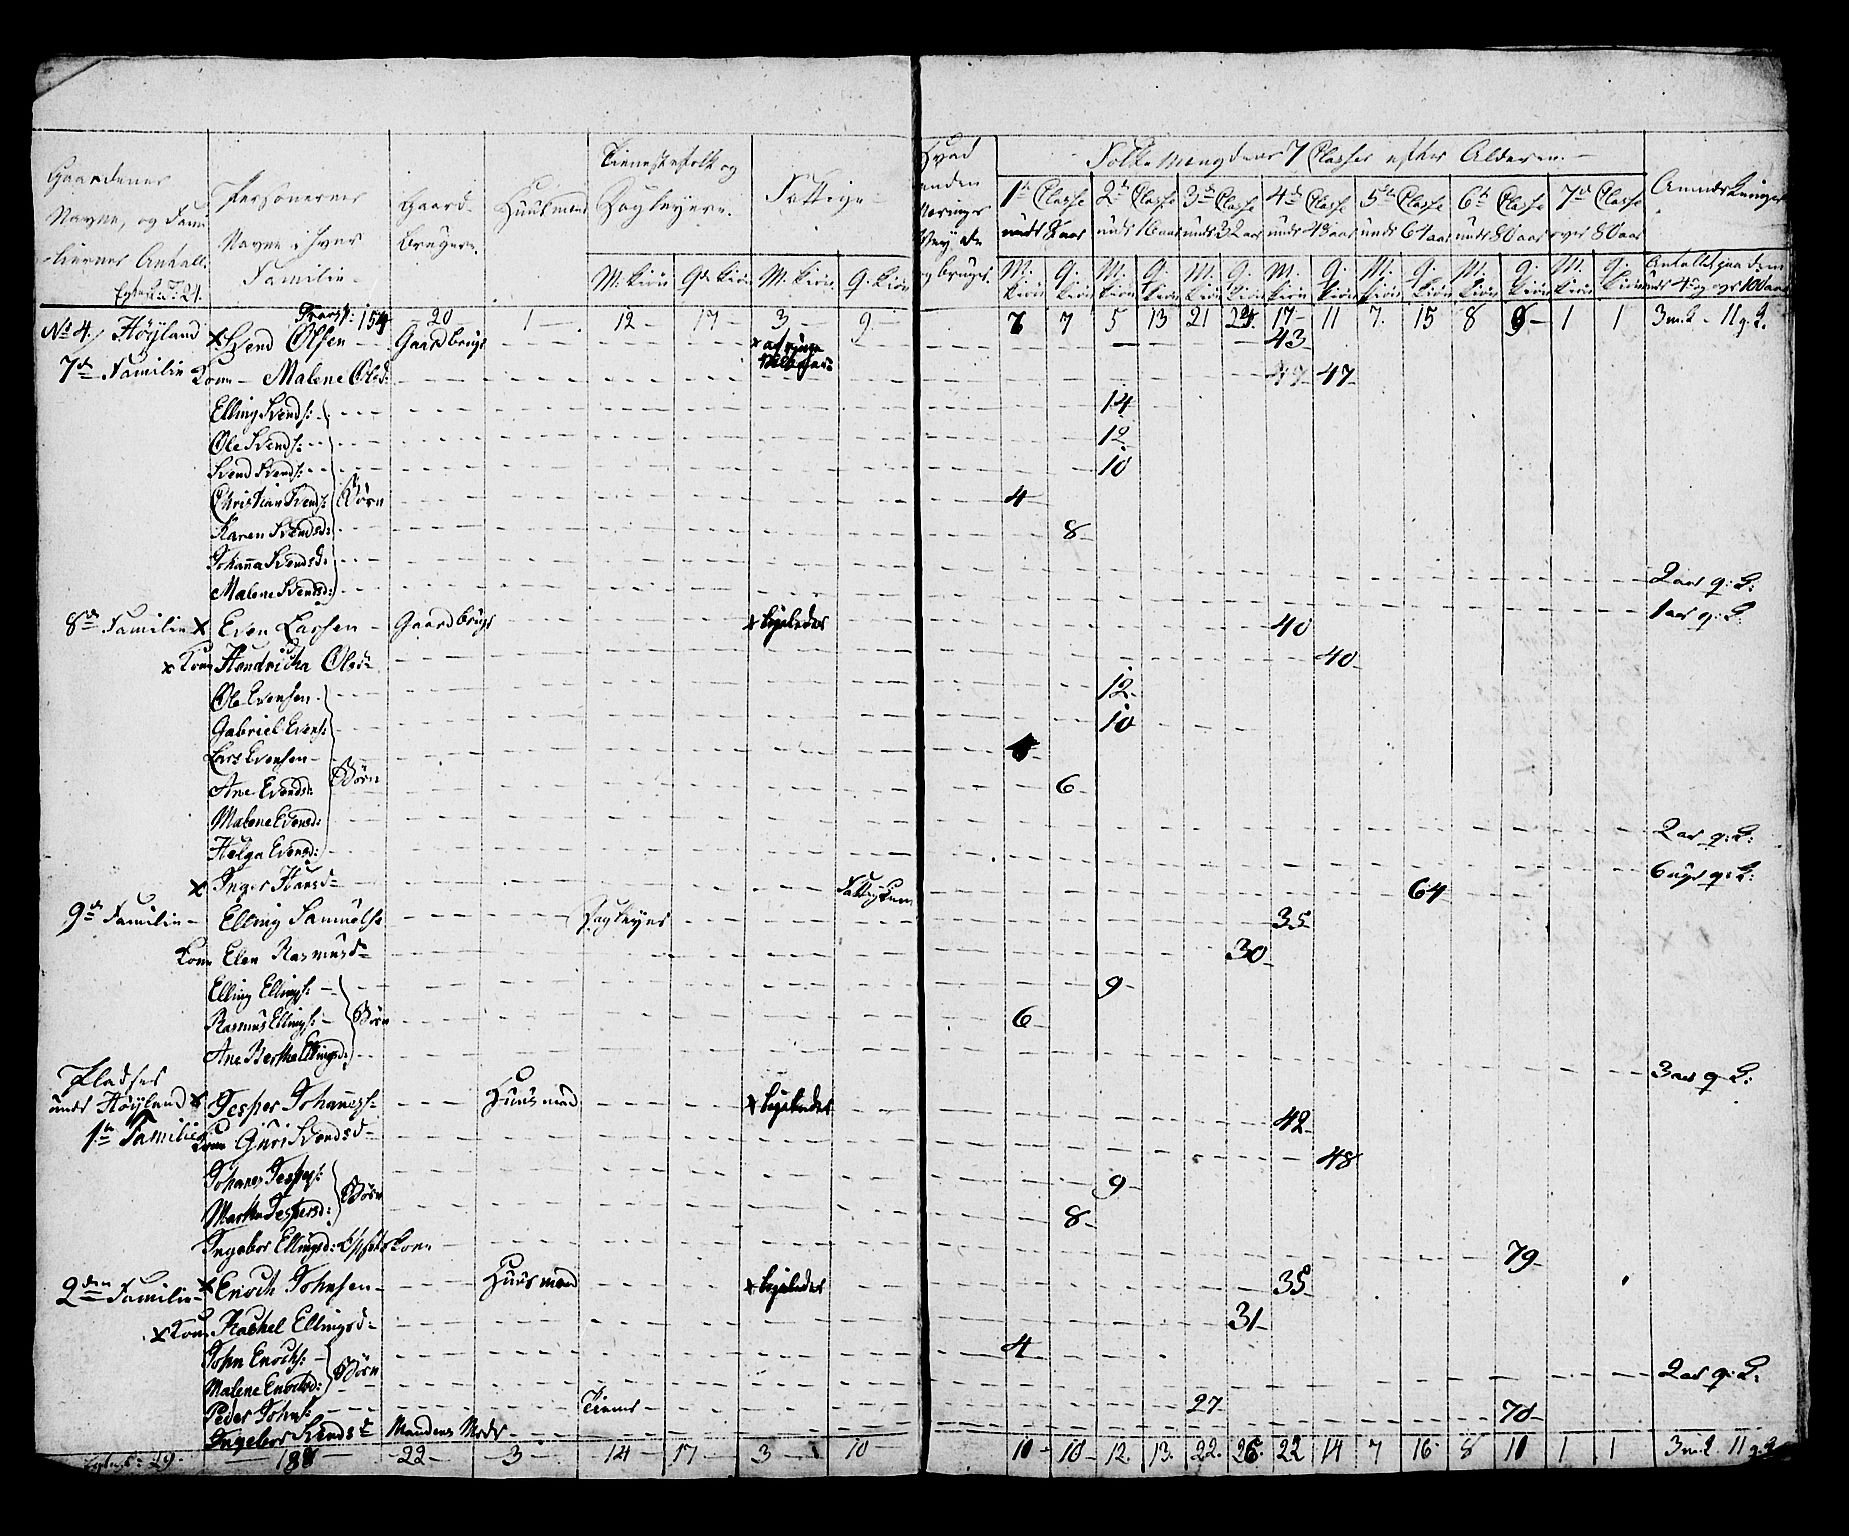 Gaardenes Navne, og Fami-liernes Antall. | Personernes Navne i hver Familie | Gaard-brugere | Huusmænd | Tienestefolk og Dagleyere. | Fattige | Hvad anden Nærings Vey de bruger | Folke Mængdens 7 Classer efter Alderen. | Anmærkninger
1te Classe under 8 aar | 2den Classe under 16 aar | 3de Classe under 32 aar | 4de Classe under 48 aar | 5te Classe under 64 aar | 6te Classe under 80 aar | 7de Classe over 80 aar
M. kiøn | Q. kiøn | M. kiøn | Q. kiøn | M. kiøn | Q. kiøn | M. kiøn | Q. kiøn | M. kiøn | Q. kiøn | M. kiøn | Q. kiøn | M. kiøn | Q. kiøn | M. kiøn | Q. kiøn | M. kiøn | Q. kiøn | Antallet paa dem under 4 og over 100 aar
Transp: 154 | 20 | 1 | 12 | 17 | 3 | 9 | 7 | 7 | 5 | 13 | 21 | 24 | 17 | 11 | 7 | 15 | 8 | 9 | 1 | 1 | 3 m. k. 11 q. k.
No 4 Höÿland x Svend Olsen Gaardbruger 43
7de Familie Kone Malene Olsd: 47 47
Elling Svends: 14
Ole Svends: 12
Svend Svends: 10
Christian Svends: Börn 4
Karen Svendsd: 8
Johanna Svendsd:
Malene Svendsd: 2 aar q: k:
8de Familie x Even Larsen Gaardbruger x ligeledes 40 1 aar q: k:
x Kone Hendricka Olsd: 40
Ole Evensen 12
Gabriel Evens: 10
Lars Evensen
Ane Evensd: Börn 6
Malene Evensd: 2 aar q: k:
Helga Evensd:
x Inger Hansd 64 6 uger q: k:
9de Familie Elling Samuels: Dagleyer 35
Kone Elen Rasmusd 30
Elling Ellings: 9
Rasmus Ellings: Börn 6
Ane Bertha Ellingsd: 3 aar q k:
Pladser
under Höÿland x Jesper Johanes: Huusmand x ligeledes 42
1te Familie Kone Guri Svendsd 48
Johanes Jespers: Börn 9
Martha Jespersd: 8
Ingebor Ellingsd: 79
2den Familie x Enoch Johnsen Huusmand x ligeledes 35
x Kone Rachel Ellingsd 31
John Enochs: Börn 4
Malene Enochsd: 2 aar q: k:
Peder Johns: Tiener 27
Ingebor Svendsd Mandens Moder 70
22 | 3 | 14 | 17 | 3 | 10 | 10 | 10 | 12 | 13 | 22 | 26 | 22 | 14 | 7 | 16 | 8 | 11 | 1 | 1 | 3 m. k. 11 q. k.